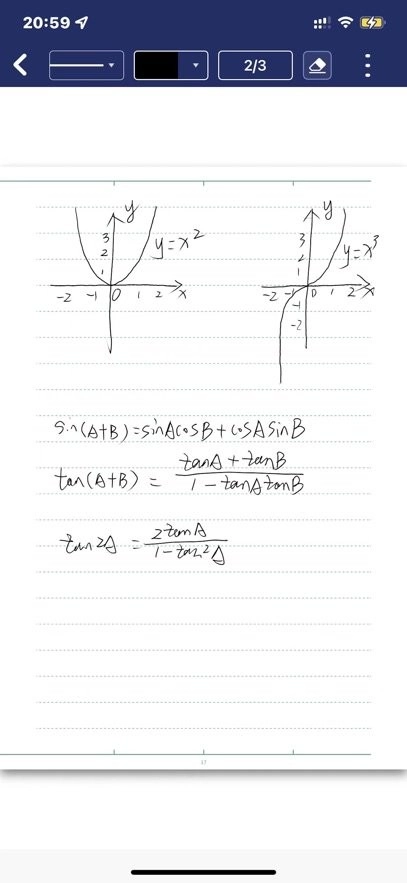 20:59
2/3
y
3
2
1
-2 -1 0 1 2 x
y=x²
y
3
2
1
-2 -1 0 1 2 x
-1
-2
y=x³
sin(A+B)=sinAcosB+cosAsinB
tan(A+B) = \frac{tanA+tanB}{1-tanAtanB}
tan2A = \frac{2tanA}{1-tan²A}